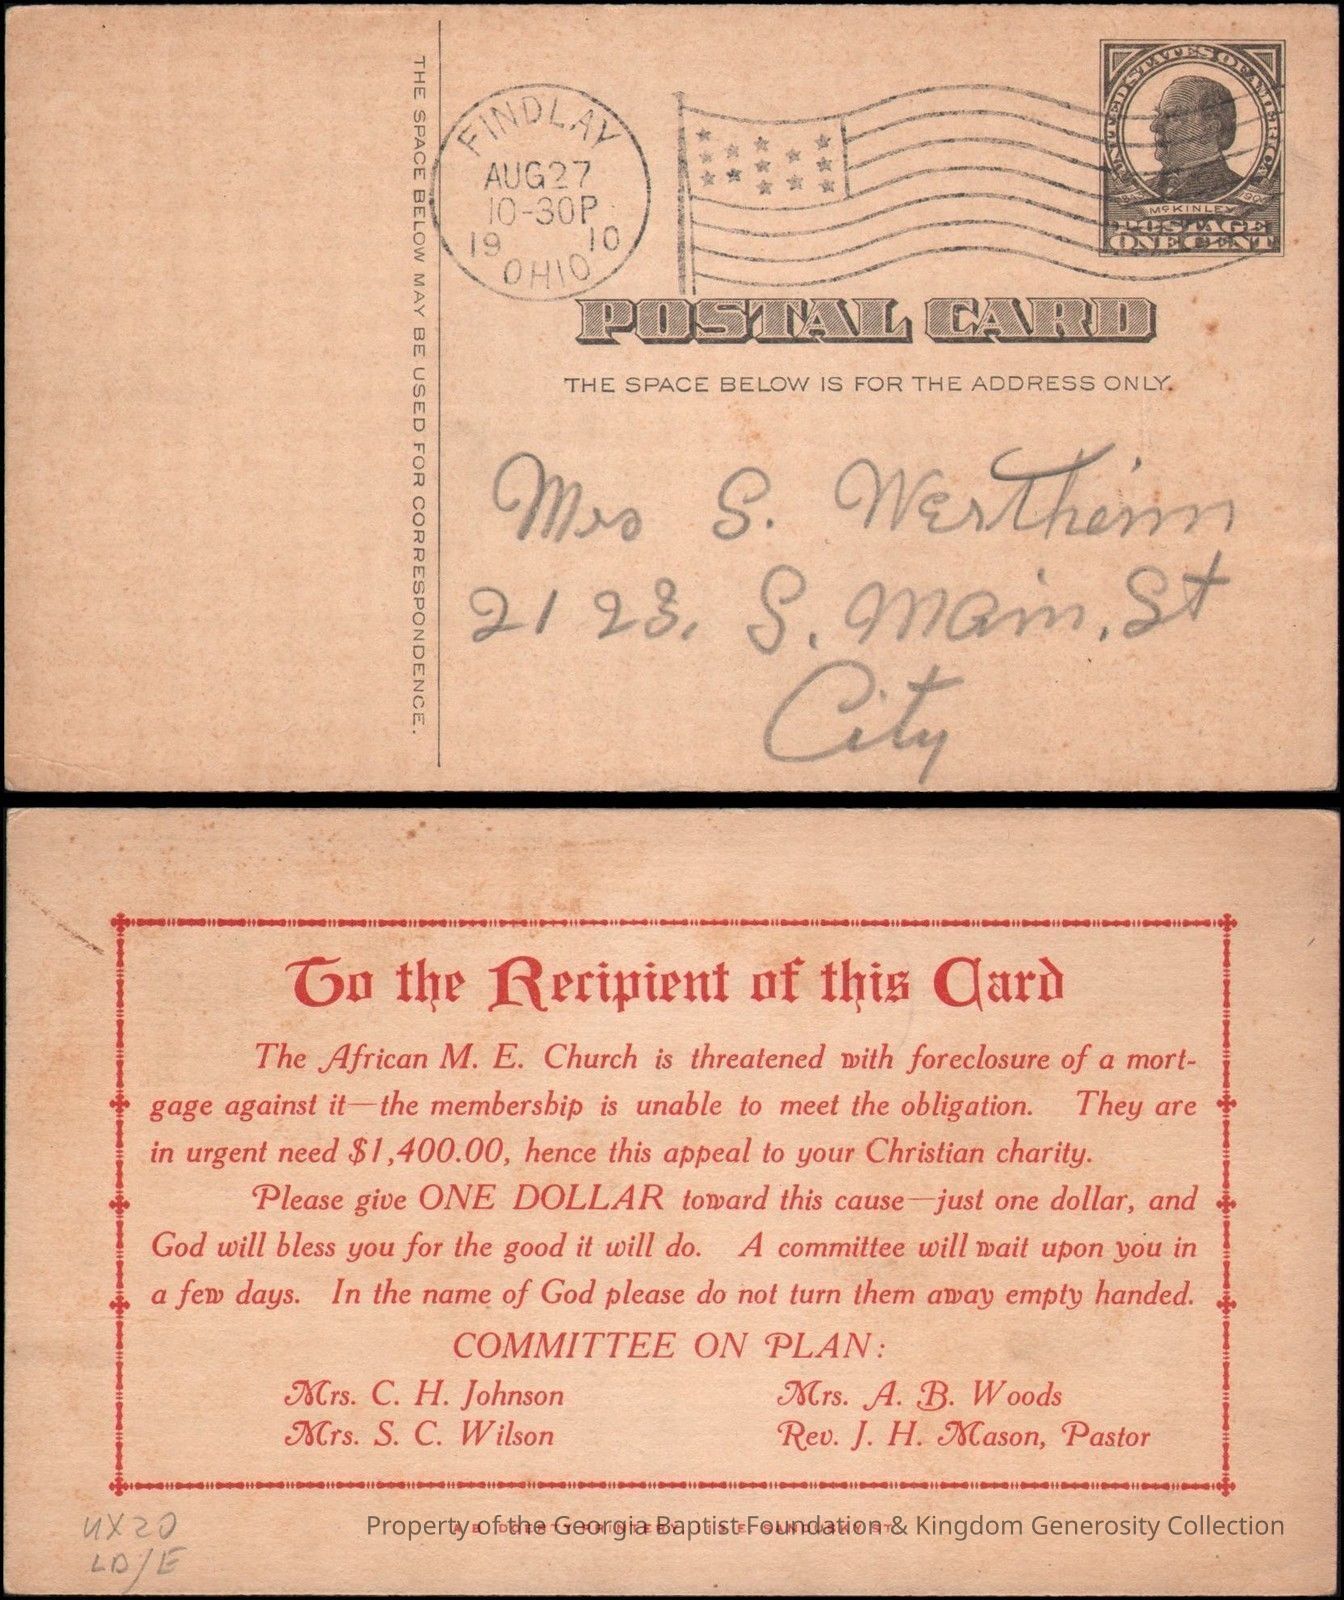 THE SPACE BELOW MAY BE USED FOR CORRESPONDENCE.
FINDLAY
AUG 27
10-30P
19 10
OHIO
UNITED STATES OF AMERICA
McKINLEY
POSTAGE
ONE CENT
POSTAL CARD
THE SPACE BELOW IS FOR THE ADDRESS ONLY.
Mrs S. Wertheim
2123, S. Main, St
City
To the Recipient of this Card
The African M. E. Church is threatened with foreclosure of a mort-
gage against it—the membership is unable to meet the obligation. They are
in urgent need $1,400.00, hence this appeal to your Christian charity.
Please give ONE DOLLAR toward this cause—just one dollar, and
God will bless you for the good it will do. A committee will wait upon you in
a few days. In the name of God please do not turn them away empty handed.
COMMITTEE ON PLAN:
Mrs. C. H. Johnson Mrs. A. B. Woods
Mrs. S. C. Wilson Rev. J. H. Mason, Pastor
UX20
LD/E
Property of the Georgia Baptist Foundation & Kingdom Generosity Collection